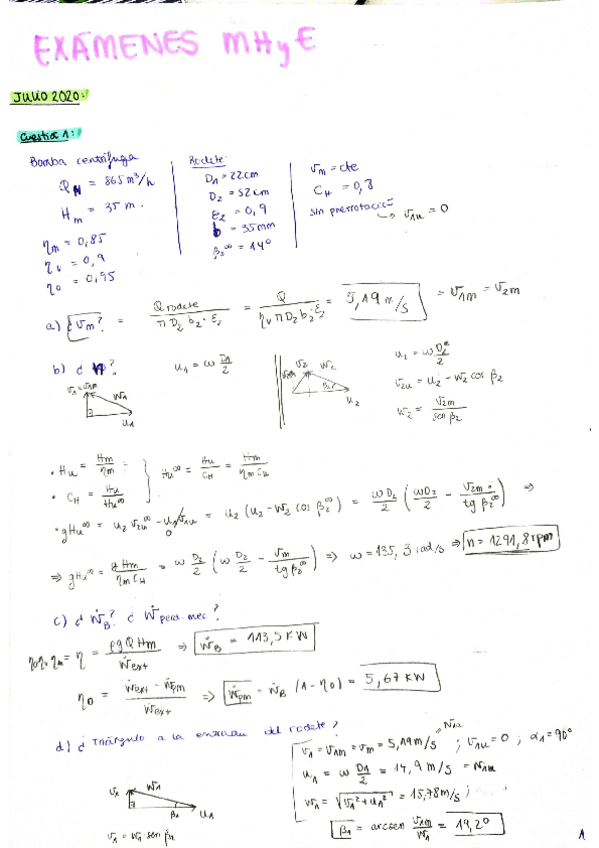 EXÁMENES MHyE
JULIO 2020:
Cuestión 1:
Bomba centrífuga
Q = 865 m³/h
Hm = 35 m.
ηm = 0,85
ηv = 0,9
ηo = 0,95
Rodete:
D1 = 22 cm
D2 = 52 cm
ε2 = 0,9
b = 35 mm
β2^∞ = 14°
vm = cte
CH = 0,8
sin prerrotación → v1u = 0
a) ¿vm? = Qrodete / π D2 b2 · ε2 = Q / ηv π D2 b2 ε2 = 5,19 m/s = v1m = v2m
b) ¿ n ?
u1 = ω D1/2
v1 = v1m
w1
u1
v2
w2
β2
u2
u2 = ω D2/2
v2u = u2 - w2 cos β2
w2 = v2m / sen β2
• Hu = Hm/ηm
• CH = Hu/Hu^∞
Hu^∞ = Hu/CH = Hm/ηm CH
• gHu^∞ = u2 v2u^∞ - u1 v1u = u2 (u2 - w2 cos β2^∞) = ωD2/2 (ωD2/2 - v2m/tg β2^∞) ⇒
0
⇒ gHu^∞ = gHm/ηm CH = ω D2/2 (ω D2/2 - vm/tg β2^∞) ⇒ ω = 135,3 rad/s ⇒ n = 1291,8 rpm
c) ¿ẆB? ¿Ẇperd.mec.?
ηo ηv ηm = η = ρgQHm / Ẇext ⇒ ẆB = 113,5 KW
ηo = Ẇext - Ẇpm / Ẇext ⇒ Ẇpm = ẆB (1 - ηo) = 5,67 KW
d) ¿Triángulo a la entrada del rodete?
v1
w1
β1
u1
v1 = w1 sen β1
v1 = v1m = vm = 5,19 m/s ; v1u = 0 ; α1 = 90°
u1 = ω D1/2 = 14,9 m/s = w1u
w1 = √v1² + u1² = 15,78 m/s ;
β1 = arcsen v1m/w1 = 19,2°
1